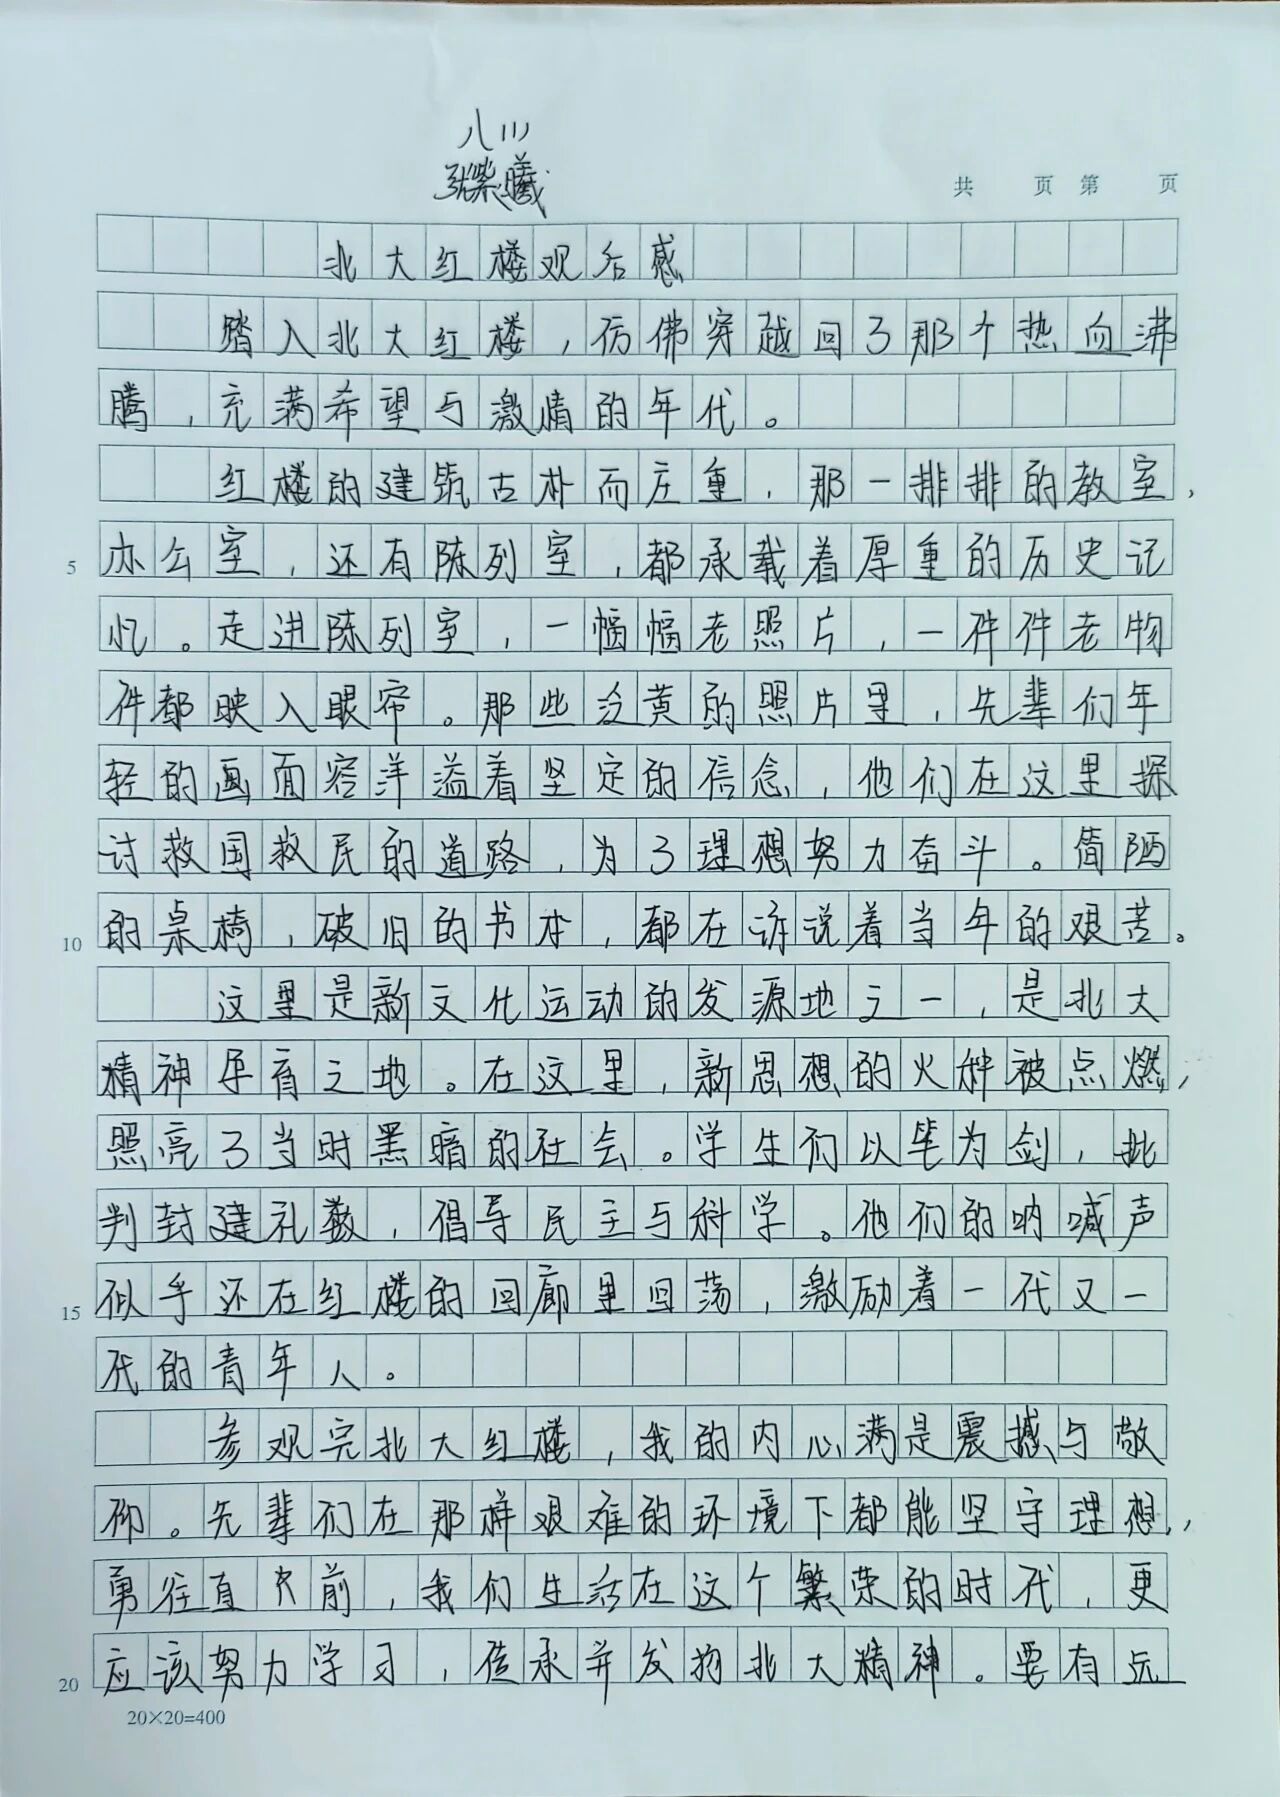 八(1)
张紫曦
共 页 第 页
北大红楼观后感
踏入北大红楼，仿佛穿越回了那个热血沸
腾，充满希望与激情的年代。
红楼的建筑古朴而庄重，那一排排的教室，
5 办公室，还有陈列室，都承载着厚重的历史记
忆。走进陈列室，一幅幅老照片，一件件老物
件都映入眼帘。那些泛黄的照片里，先辈们年
轻的画面容洋溢着坚定的信念，他们在这里探
讨救国救民的道路，为了理想努力奋斗。简陋
10 的桌椅，破旧的书本，都在诉说着当年的艰苦。
这里是新文化运动的发源地之一，是北大
精神孕育之地。在这里，新思想的火种被点燃，
照亮了当时黑暗的社会。学生们以笔为剑，批
判封建礼教，倡导民主与科学。他们的呐喊声
15 似乎还在红楼的回廊里回荡，激励着一代又一
代的青年人。
参观完北大红楼，我的内心满是震撼与敬
仰。先辈们在那样艰难的环境下都能坚守理想，
勇往直前，我们生活在这个繁荣的时代，更
20 应该努力学习，传承并发扬北大精神。要有远
20×20=400